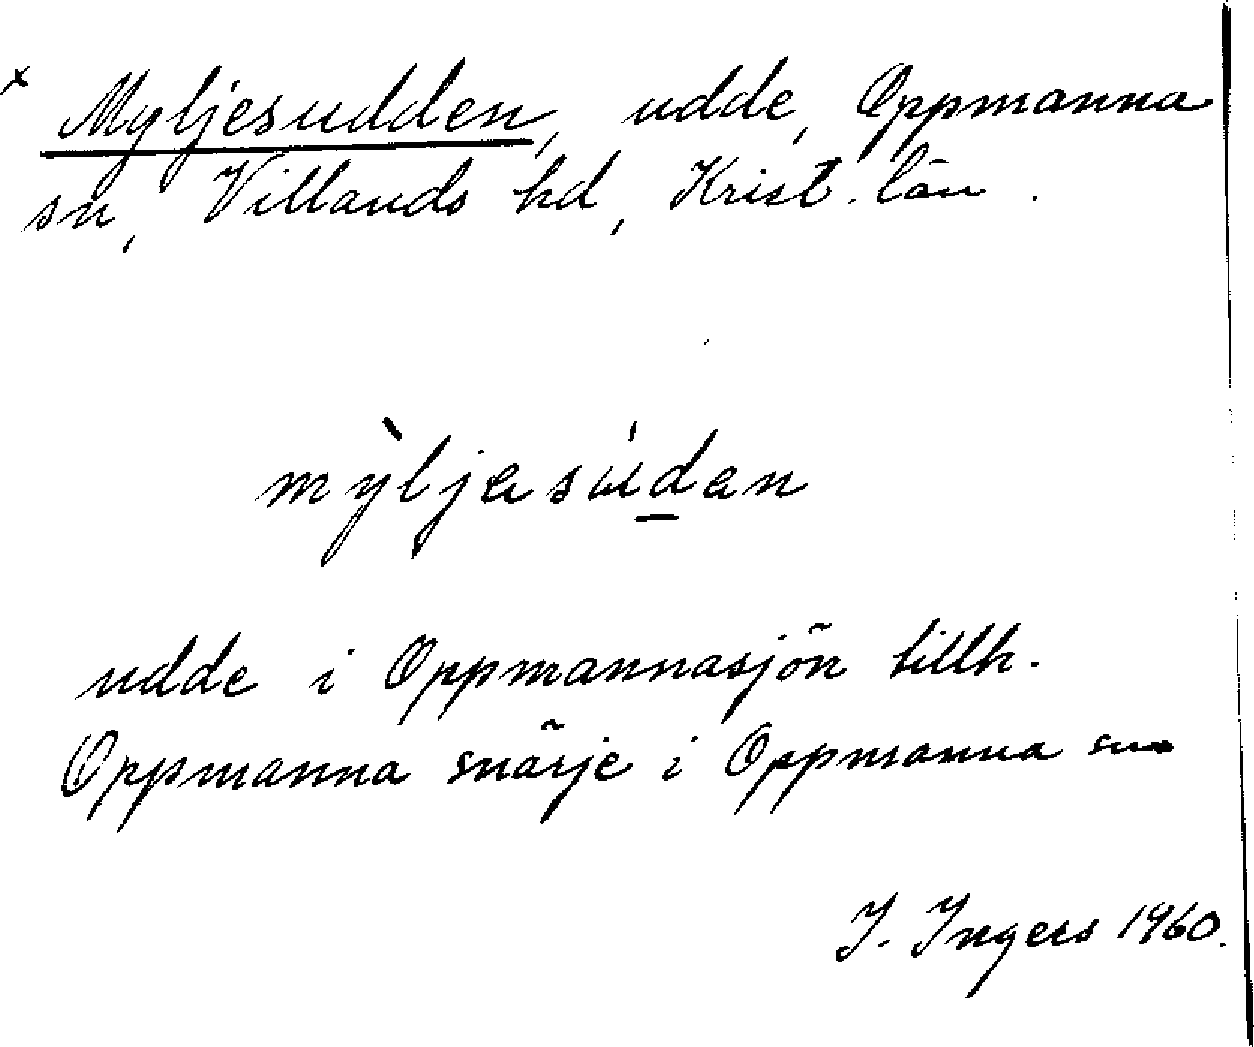 x Myljesudden, udde, Oppmanna
sn, Villands hd, Krist. län.
mỳljasúdan
udde i Oppmannasjön tillh.
Oppmanna snärje i Oppmanna sn
I. Ingers 1960.